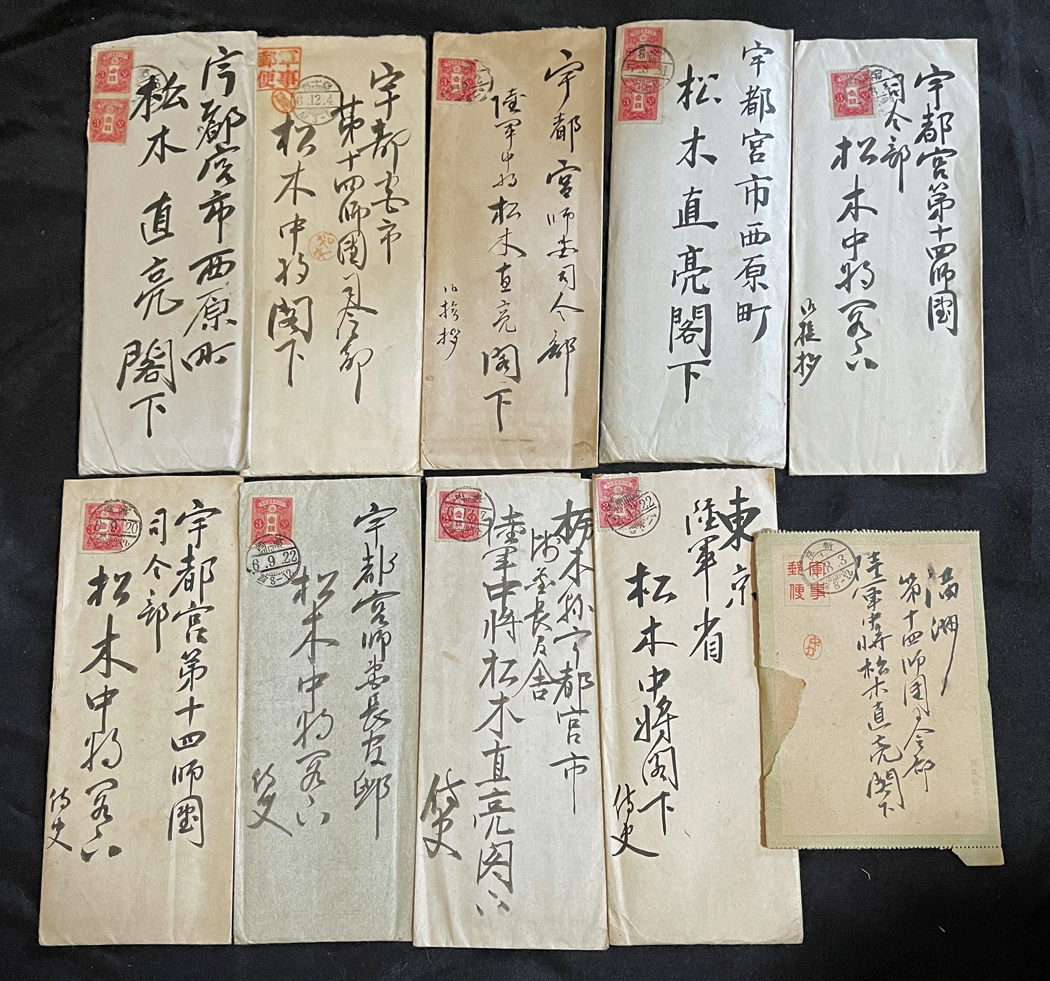 宇都宮市西原町
松木直亮閣下
軍事
郵便
6.12.4
宇都宮市
第十四師團司令部
松木中将閣下
宇都宮師団司令部
陸軍中将松木直亮閣下
御挨拶
宇都宮市西原町
松木直亮閣下
宇都宮第十四師團
司令部
松木中将閣下
御挨拶
6.9.20
宇都宮第十四師團
司令部
松木中将閣下
侍史
6.9.22
宇都宮師団長官邸
松木中将閣下
侍史
栃木縣宇都宮市
師団長官舎
陸軍中將松木直亮閣下
侍史
9.22
東京
陸軍省
松木中將閣下
侍史
軍事
郵便
8.3
8-12
満洲
第十四師團司令部
陸軍中將松木直亮閣下